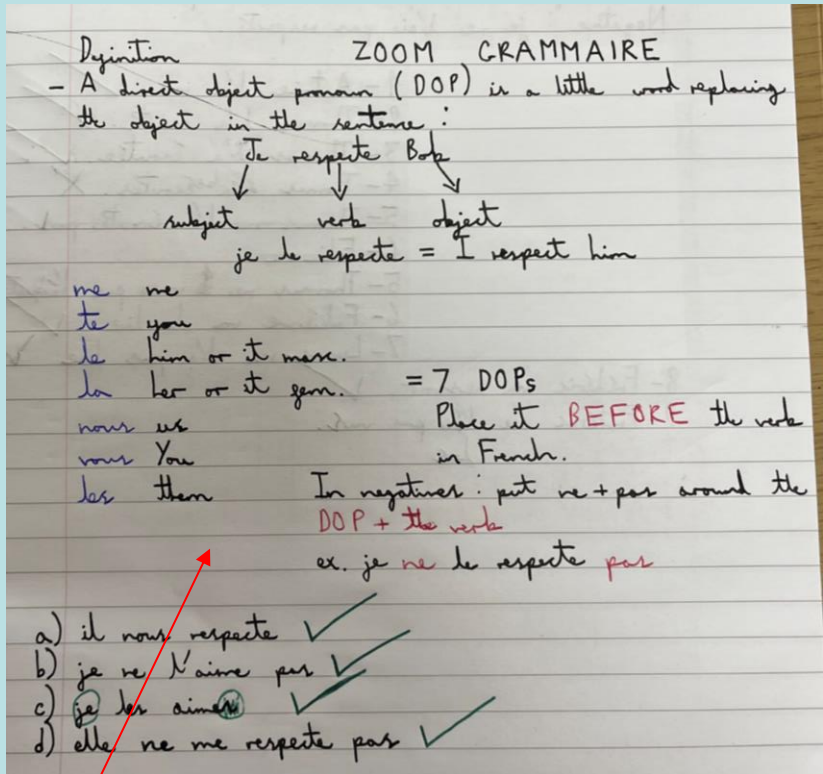 Definition ZOOM GRAMMAIRE
- A direct object pronoun (DOP) is a little word replacing
the object in the sentence :
Je respecte Bob
subject verb object
je le respecte = I respect him
me me
te you
le him or it masc.
la her or it fem. = 7 DOPs
nous us Place it BEFORE the verb
vous You in French.
les them In negatives : put ne + pas around the
DOP + the verb
ex. je ne le respecte pas
a) il nous respecte
b) je ne l'aime pas
c) je les aime
d) elle ne me respecte pas